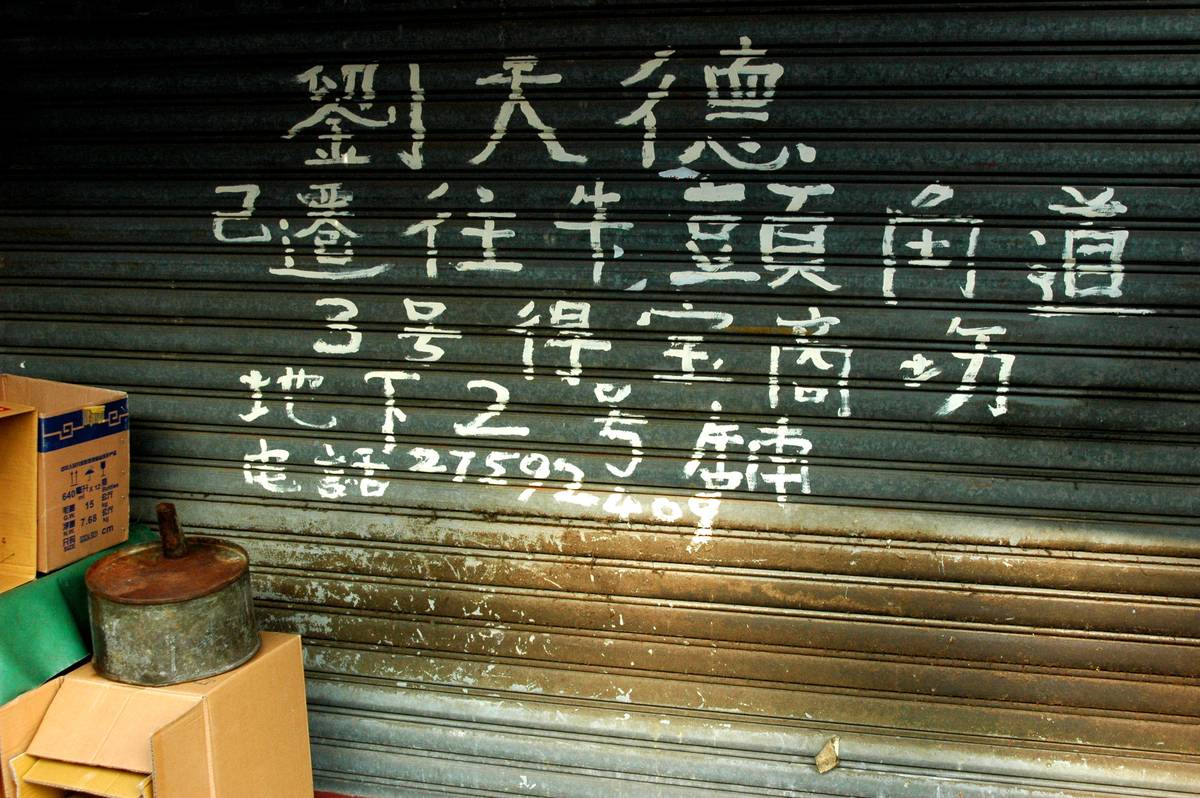 劉天德
己遷往牛頭角道
3号得宝商场
地下2号舖
电話27592409
640 X 12
Bottles
G.W. 15 kg
N.W. 7.68 kg
SIZE cm